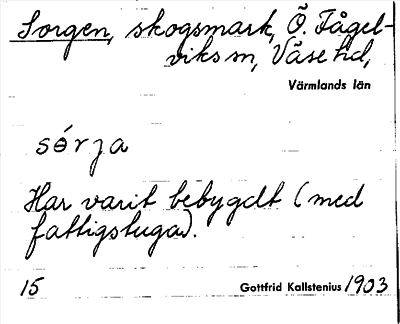 Sorgen, skogsmark, Ö. Fågel-
viks sn, Väse hd,
Värmlands län
sórja
Har varit bebygdt (med
fattigstuga).
15 Gottfrid Kallstenius 1903